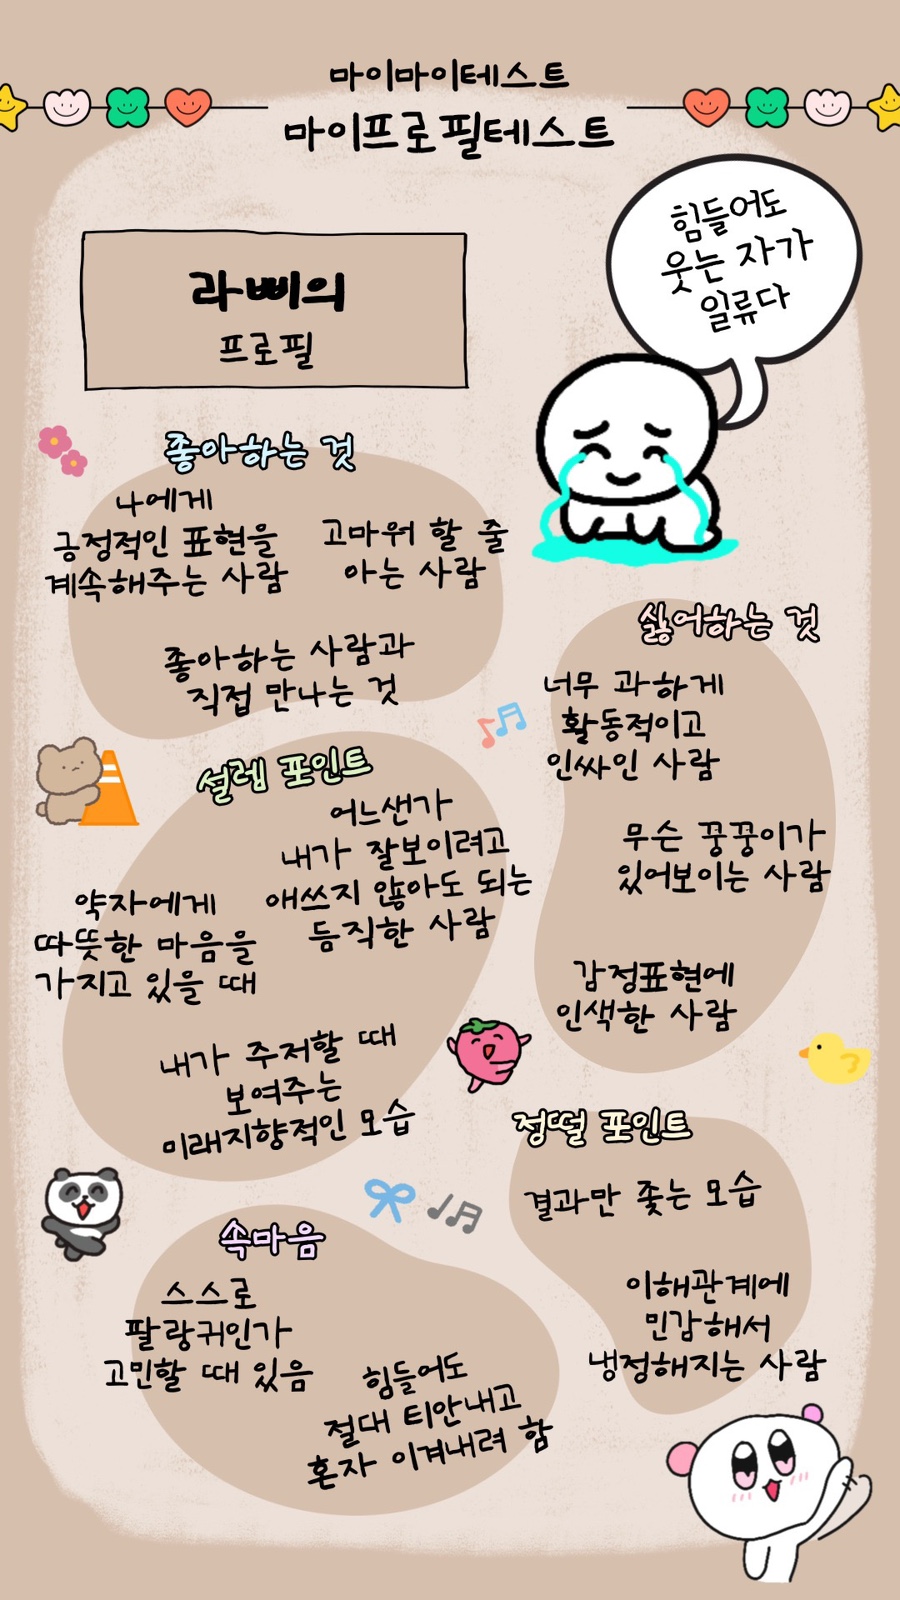 마이마이테스트
마이프로필테스트
힘들어도
웃는 자가
일류다
라삐의
프로필
좋아하는 것
나에게
긍정적인 표현을
계속해주는 사람
고마워 할 줄
아는 사람
좋아하는 사람과
직접 만나는 것
싫어하는 것
너무 과하게
활동적이고
인싸인 사람
무슨 꿍꿍이가
있어보이는 사람
감정표현에
인색한 사람
설렘 포인트
어느샌가
내가 잘보이려고
애쓰지 않아도 되는
듬직한 사람
약자에게
따뜻한 마음을
가지고 있을 때
내가 주저할 때
보여주는
미래지향적인 모습
정떨 포인트
결과만 좇는 모습
이해관계에
민감해서
냉정해지는 사람
속마음
스스로
팔랑귀인가
고민할 때 있음
힘들어도
절대 티안내고
혼자 이겨내려 함